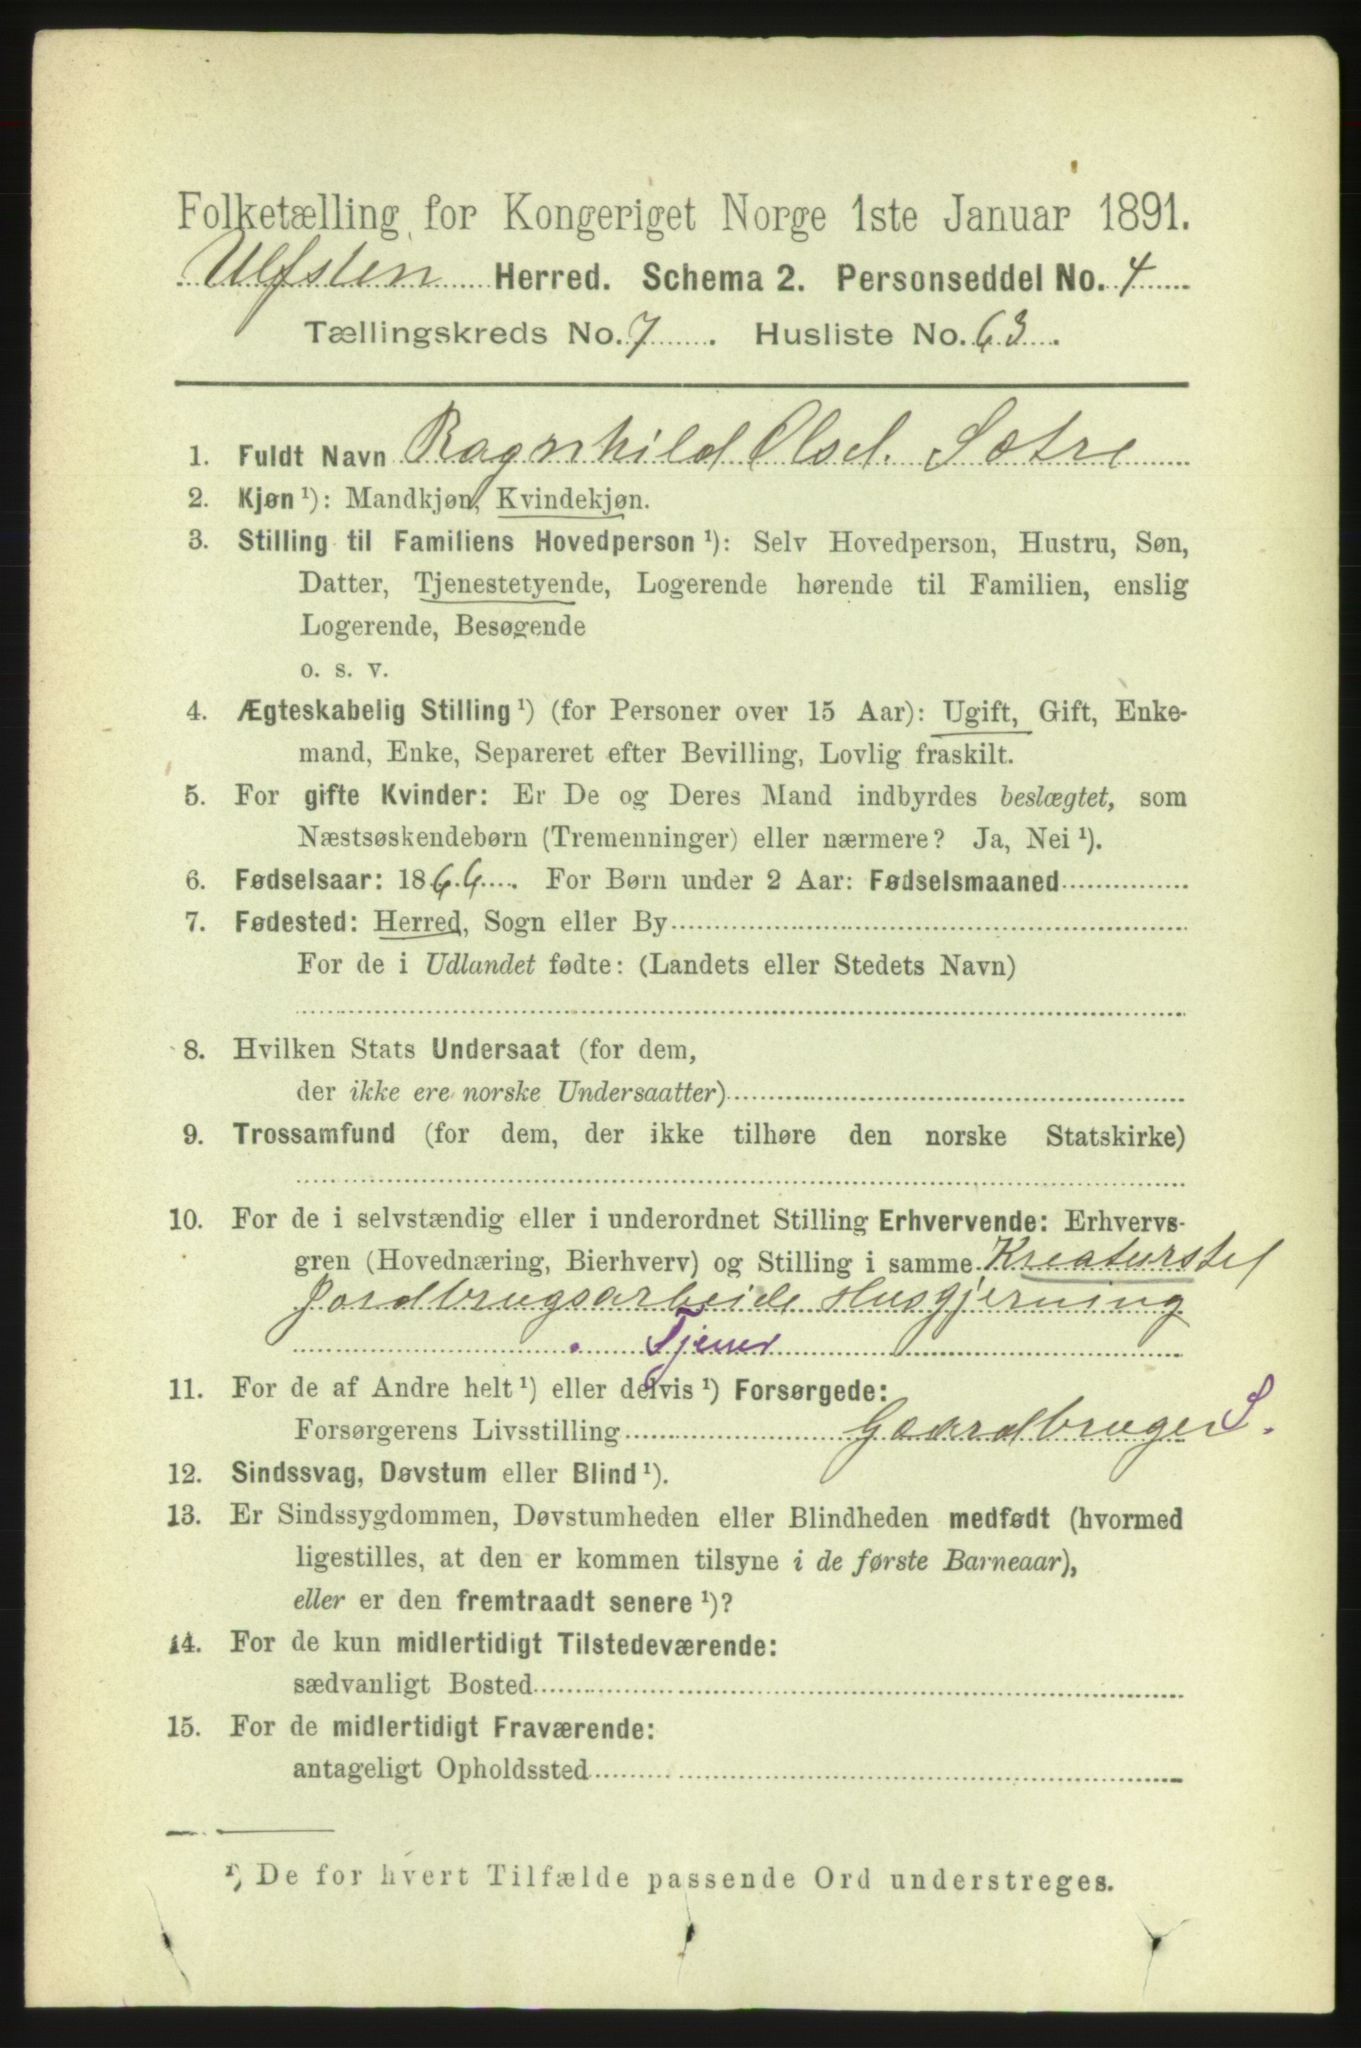 Folketælling for Kongeriget Norge 1ste Januar 1891.
Ulfsten Herred. Schema 2. Personseddel No. 4
Tællingskreds No. 7. Husliste No. 63.
1. Fuldt Navn Ragnhild Olsd. Sætre
2. Kjøn ¹): Mandkjøn, Kvindekjøn.
3. Stilling til Familiens Hovedperson ¹): Selv Hovedperson, Hustru, Søn,
Datter, Tjenestetyende, Logerende hørende til Familien, enslig
Logerende, Besøgende
o. s. v.
4. Ægteskabelig Stilling ¹) (for Personer over 15 Aar): Ugift, Gift, Enke-
mand, Enke, Separeret efter Bevilling, Lovlig fraskilt.
5. For gifte Kvinder: Er De og Deres Mand indbyrdes beslægtet, som
Næstsøskendebørn (Tremenninger) eller nærmere? Ja, Nei ¹).
6. Fødselsaar: 1866. For Børn under 2 Aar: Fødselsmaaned
7. Fødested: Herred, Sogn eller By
For de i Udlandet fødte: (Landets eller Stedets Navn)
8. Hvilken Stats Undersaat (for dem,
der ikke ere norske Undersaatter)
9. Trossamfund (for dem, der ikke tilhøre den norske Statskirke)
10. For de i selvstændig eller i underordnet Stilling Erhvervende: Erhvervs-
gren (Hovednæring, Bierhverv) og Stilling i samme Kreaturstel
Jordbrugsarbeide Husgjerning
Tjener
11. For de af Andre helt ¹) eller delvis ¹) Forsørgede:
Forsørgerens Livsstilling Gaardbruger S.
12. Sindssvag, Døvstum eller Blind ¹).
13. Er Sindssygdommen, Døvstumheden eller Blindheden medfødt (hvormed
ligestilles, at den er kommen tilsyne i de første Barneaar),
eller er den fremtraadt senere ¹)?
14. For de kun midlertidigt Tilstedeværende:
sædvanligt Bosted
15. For de midlertidigt Fraværende:
antageligt Opholdssted
¹) De for hvert Tilfælde passende Ord understreges.